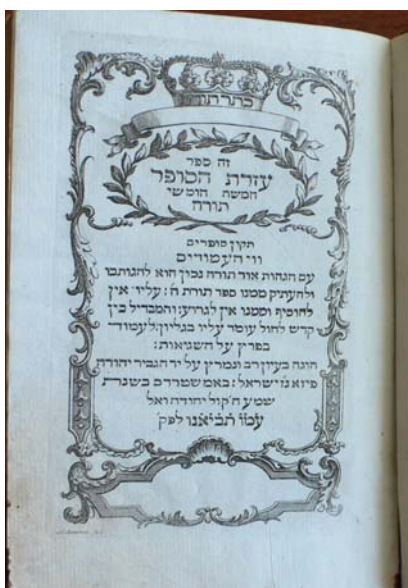 כתר תורה
זה ספר
עזרת הסופר
חמשה חומשי
תורה
תקון סופרים
ווי העמודים
עם הגהות אור תורה נכין הוא להגותבו
ולהעתיק ממנו ספר תורת ה׳: עליו אין
להוסיף וממנו אין לגרוע: והמבדיל בין
קדש לחול עומד עליו בגליון: לעמוד
בפרץ על השגיאות:
הוגה בעיון רב ונמרץ על יד הגביר יהודה
פיזא בישראל: באמשטרדם בשנת
שמע ה׳ קול יהודה ואל
עמו תביאנו לפק׳